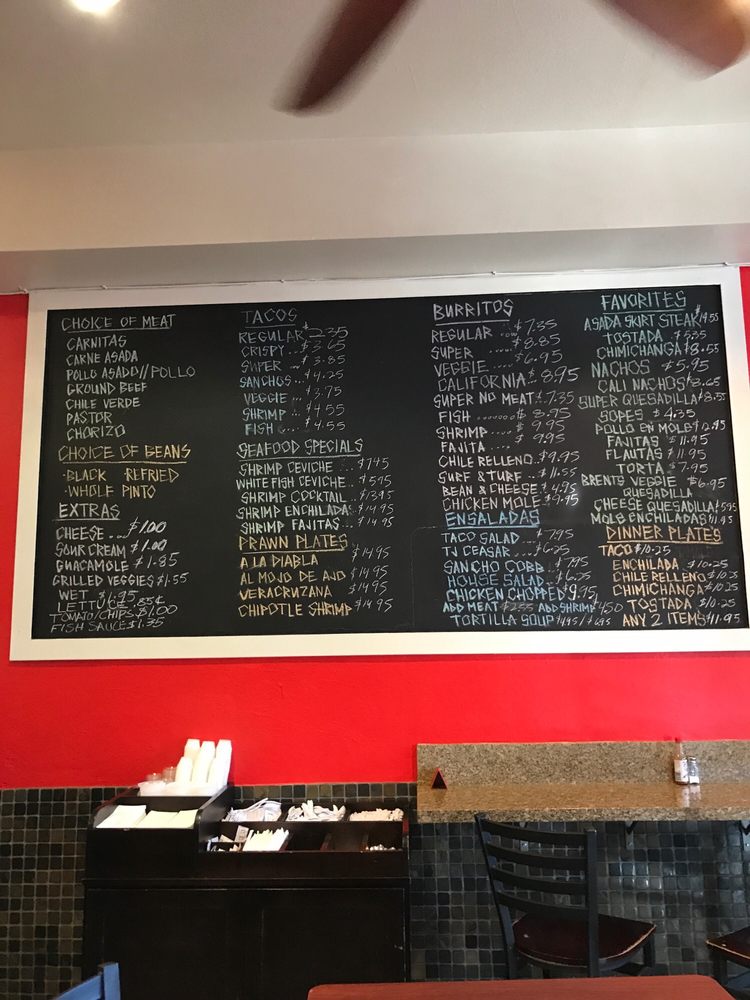 CHOICE OF MEAT
CARNITAS
CARNE ASADA
POLLO ASADO//POLLO
GROUND BEEF
CHILE VERDE
PASTOR
CHORIZO
CHOICE OF BEANS
·BLACK REFRIED
·WHOLE PINTO
EXTRAS
CHEESE ... $1.00
SOUR CREAM $1.00
GUACAMOLE $1.85
GRILLED VEGGIES $1.55
WET ... $1.95
LETTUCE .85¢
TOMATO/CHIPS $1.00
FISH SAUCE $1.35
TACOS
REGULAR $2.35
CRISPY ... $3.65
SUPER ... $3.85
SANCHOS ... $4.25
VEGGIE ... $3.75
SHRIMP ... $4.55
FISH ... $4.55
SEAFOOD SPECIALS
SHRIMP CEVICHE ... $7.45
WHITE FISH CEVICHE ... $5.95
SHRIMP COCKTAIL ... $13.95
SHRIMP ENCHILADAS $14.95
SHRIMP FAJITAS ... $14.95
PRAWN PLATES
A LA DIABLA $14.95
AL MOJO DE AJO $14.95
VERACRUZANA $14.95
CHIPOTLE SHRIMP $14.95
BURRITOS
REGULAR ... $7.35
SUPER .... $8.85
VEGGIE ..... $6.95
CALIFORNIA .. $8.95
SUPER NO MEAT $7.35
FISH ....... $8.95
SHRIMP .... $9.95
FAJITA .... $9.95
CHILE RELLENO .. $9.95
SURF & TURF .. $11.55
BEAN & CHEESE $4.95
CHICKEN MOLE $9.95
ENSALADAS
TACO SALAD .. $7.95
TJ CEASAR ... $6.25
SANCHO COBB .. $7.95
HOUSE SALAD .. $6.25
CHICKEN CHOPPED $9.95
ADD MEAT $2.55 ADD SHRIMP $4.50
TORTILLA SOUP $4.95/$6.95
FAVORITES
ASADA SKIRT STEAK $14.55
TOSTADA $5.35
CHIMICHANGA $8.55
NACHOS $5.95
CALI NACHOS $8.65
SUPER QUESADILLA $8.55
SOPES $4.35
POLLO EN MOLE $12.95
FAJITAS $11.95
FLAUTAS $11.95
TORTA $7.95
BRENTS VEGGIE $6.95
QUESADILLA
CHEESE QUESADILLA $5.95
MOLE ENCHILADAS $11.95
DINNER PLATES
TACO $10.25
ENCHILADA $10.25
CHILE RELLENO $10.25
CHIMICHANGA $10.25
TOSTADA $10.25
ANY 2 ITEMS $11.95